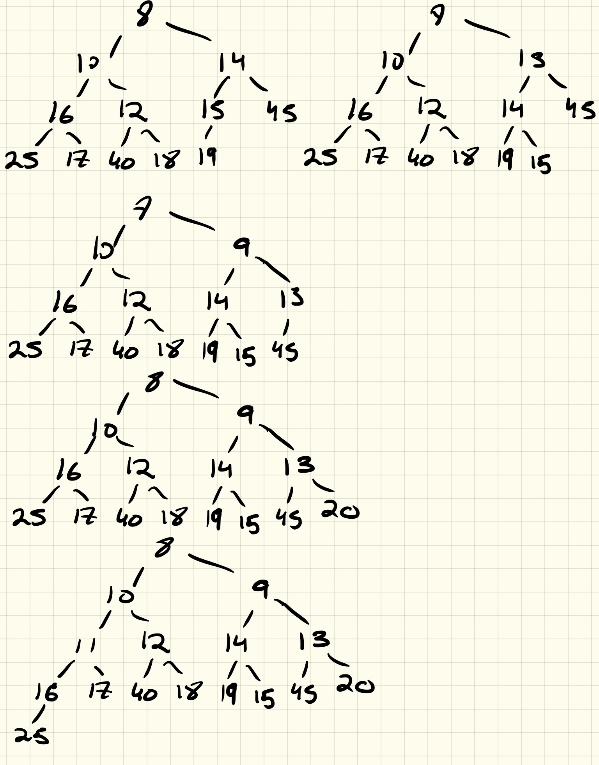 8 8
10 14 10 13
16 12 15 45 16 12 14 45
25 17 40 18 19 25 17 40 18 19 15
10 9
16 12 14 13
25 17 40 18 19 15 45
8
10 9
16 12 14 13
25 17 40 18 19 15 45 20
8
10 9
11 12 14 13
16 17 40 18 19 15 45 20
25